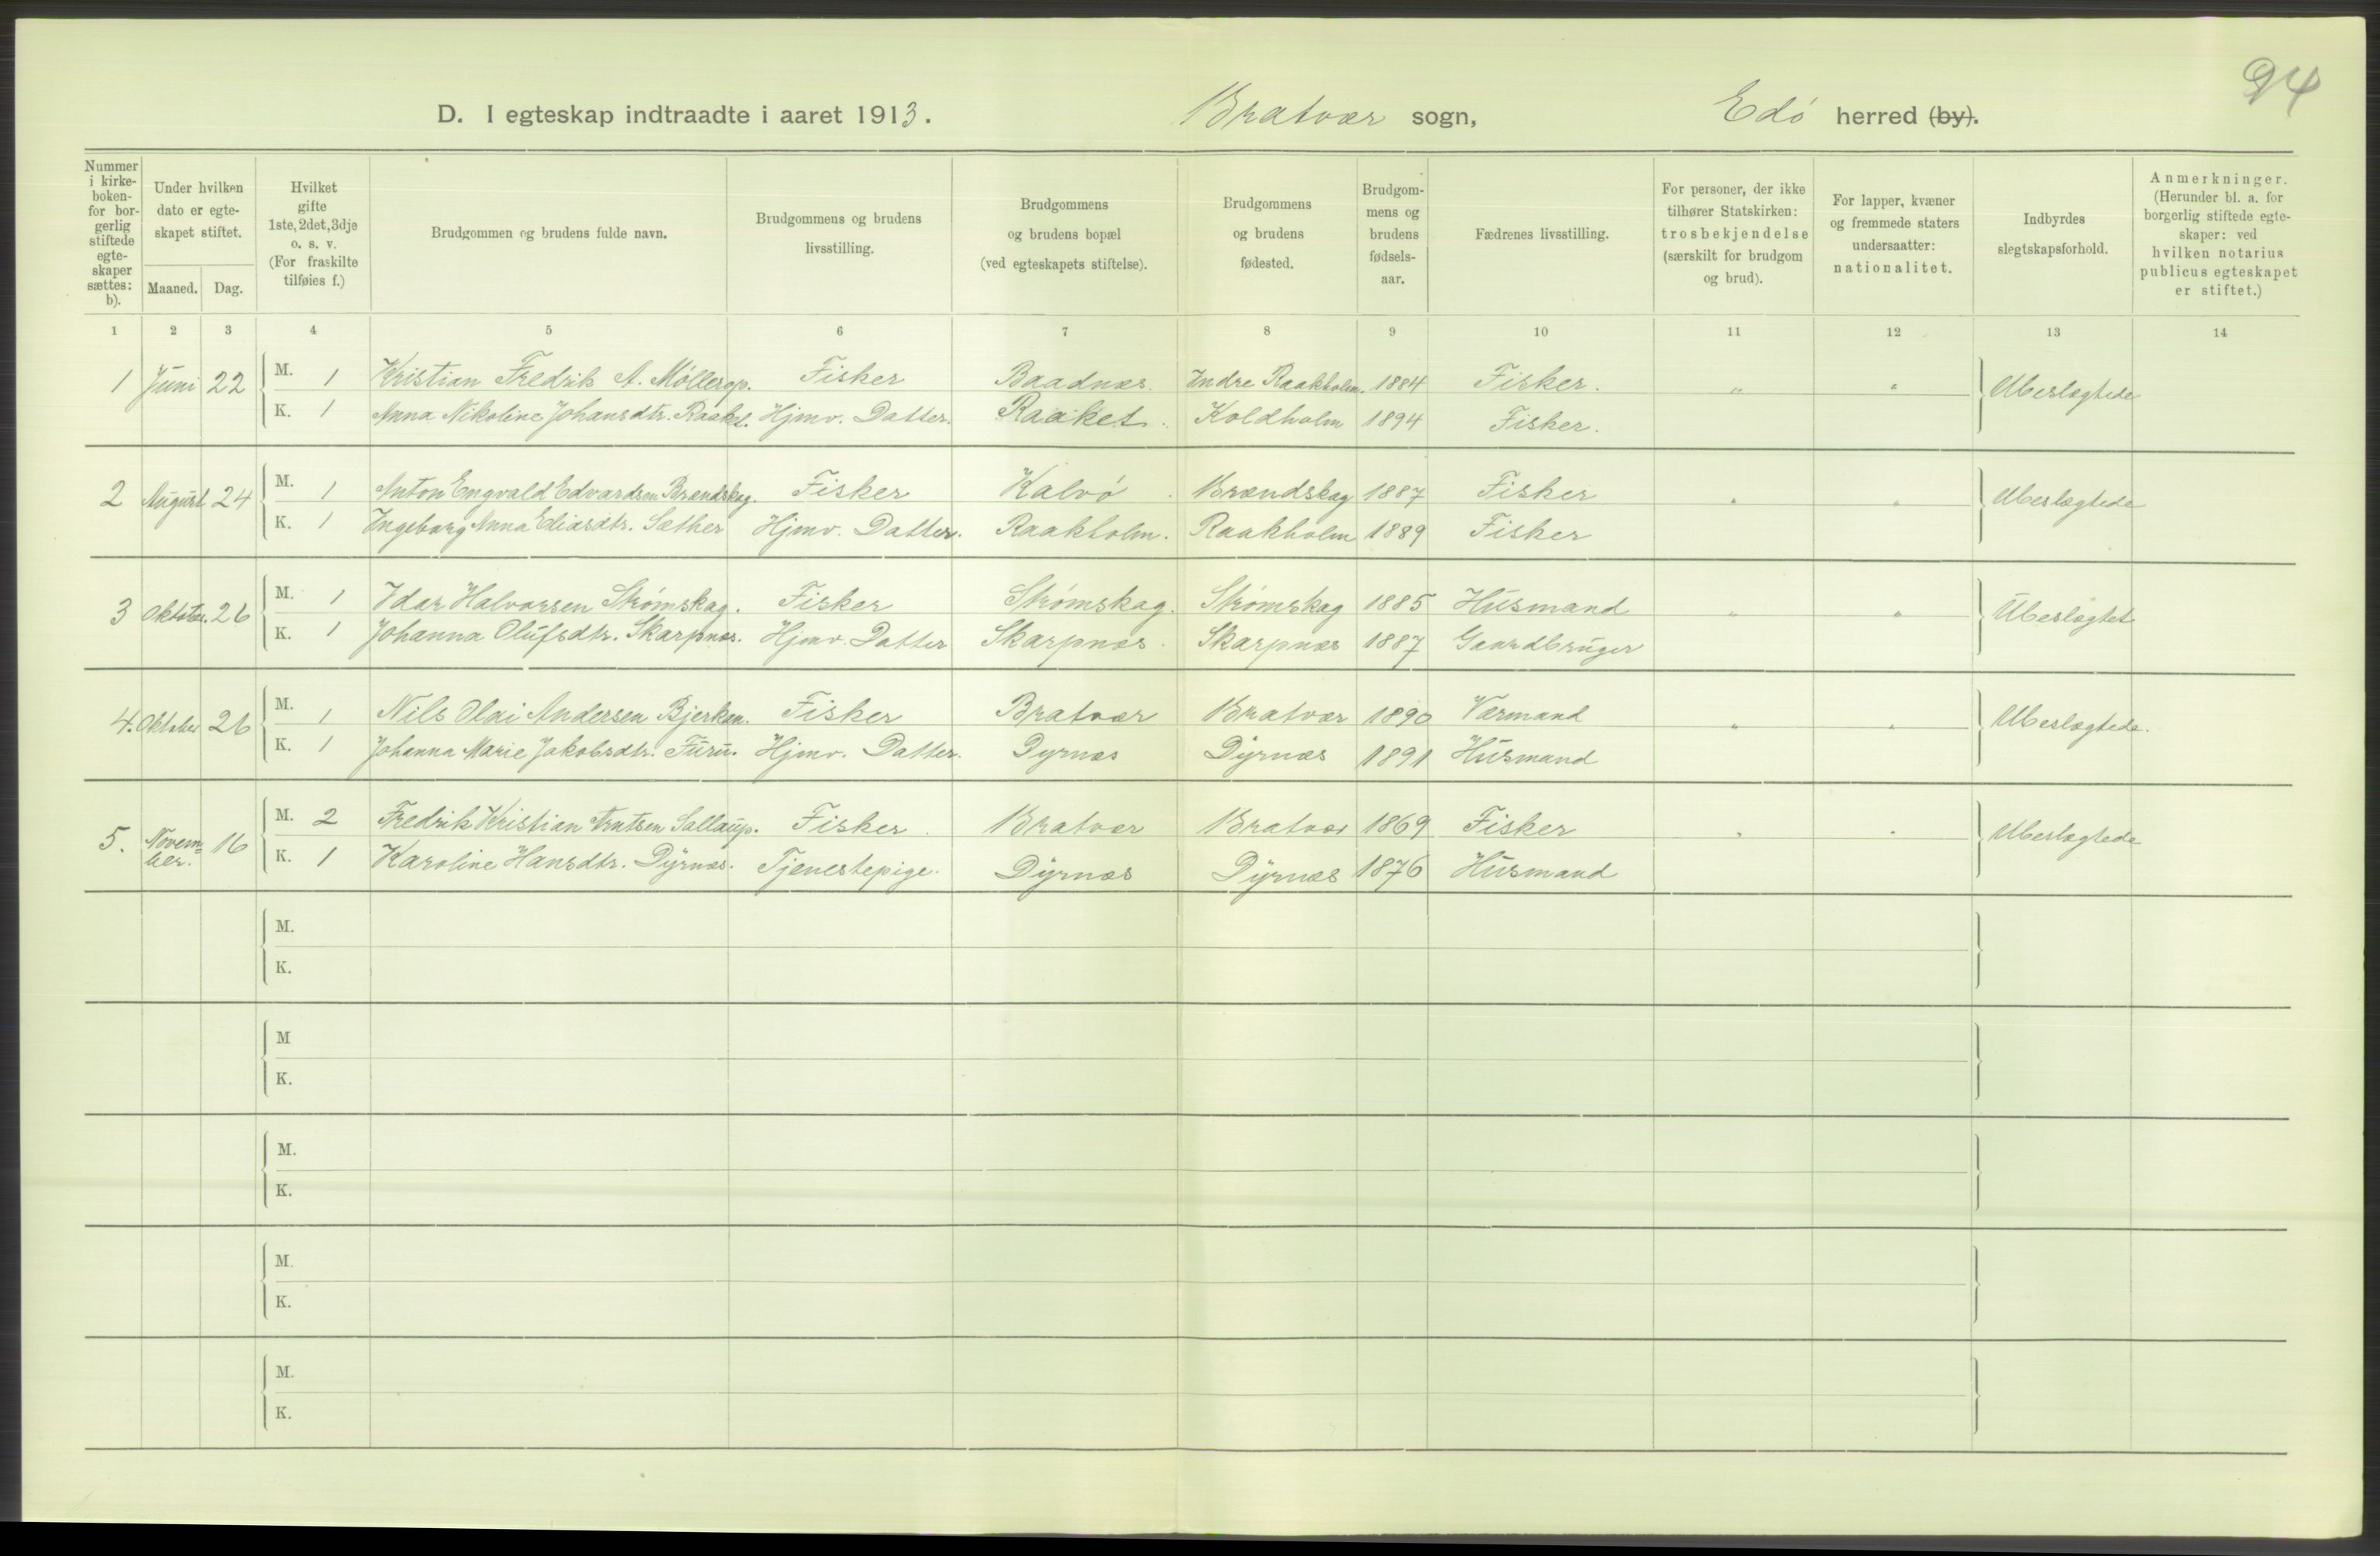 94
D. I egteskap indtraadte i aaret 1913. Bratvær sogn, Edö herred (by).
Nummer i kirke-boken- for bor-gerlig stiftede egte-skaper sættes: b).
Under hvilken dato er egte-skapet stiftet.
Maaned. Dag.
Hvilket gifte 1ste, 2det, 3dje o. s. v. (For fraskilte tilføies f.)
Brudgommen og brudens fulde navn.
Brudgommens og brudens livsstilling.
Brudgommens og brudens bopæl (ved egteskapets stiftelse).
Brudgommens og brudens fødested.
Brudgom-mens og brudens fødsels-aar.
Fædrenes livsstilling.
For personer, der ikke tilhører Statskirken: trosbekjendelse (særskilt for brudgom og brud).
For lapper, kvæner og fremmede staters undersaatter: nationalitet.
Indbyrdes slegtskapsforhold.
Anmerkninger. (Herunder bl. a. for borgerlig stiftede egte-skaper: ved hvilken notarius publicus egteskapet er stiftet.)
1 2 3 4 5 6 7 8 9 10 11 12 13 14
1 Juni 22 M. 1 Kristian Fredrik A. Möllerop. Fisker Baadnæs. Indre Raakholm. 1884 Fisker. " " Ubeslægtede
K. 1 Anna Nikoline Johansdtr. Raaket. Hjmv. Datter. Raaket. Koldholm 1894 Fisker.
2 August 24 M. 1 Anton Engvald Edvardsen Brændskag. Fisker Kalvö Brændskag 1887 Fisker " " Ubeslægtede
K. 1 Ingeborg Anna Eliasdtr. Sæther Hjmv. Datter. Raakholm. Raakholm 1889 Fisker
3 Oktober. 26 M. 1 Idar Halvorsen Strömskag. Fisker Strömskag. Strömskag 1885 Husmand " " Ubeslægtet
K. 1 Johanna Olufsdtr. Skarpnæs. Hjmv. Datter Skarpnæs. Skarpnæs 1887 Gaardbruger
4. Oktober 26 M. 1 Nils Olai Andersen Bjerkan. Fisker Bratvær Bratvær 1890 Værmand " " Ubeslægtede.
K. 1 Johanna Marie Jakobsdtr. Furu. Hjmv. Datter. Dyrnæs Dyrnæs 1891 Husmand
5. Novem=ber. 16 M. 2 Fredrik Kristian Knutsen Sollaup. Fisker. Bratvær Bratvær 1869 Fisker " " Ubeslægtede
K. 1 Karoline Hansdtr. Dyrnæs. Tjenestepige. Dyrnæs Dyrnæs 1876 Husmand
M.
K.
M
K.
M.
K.
M.
K.
M.
K.